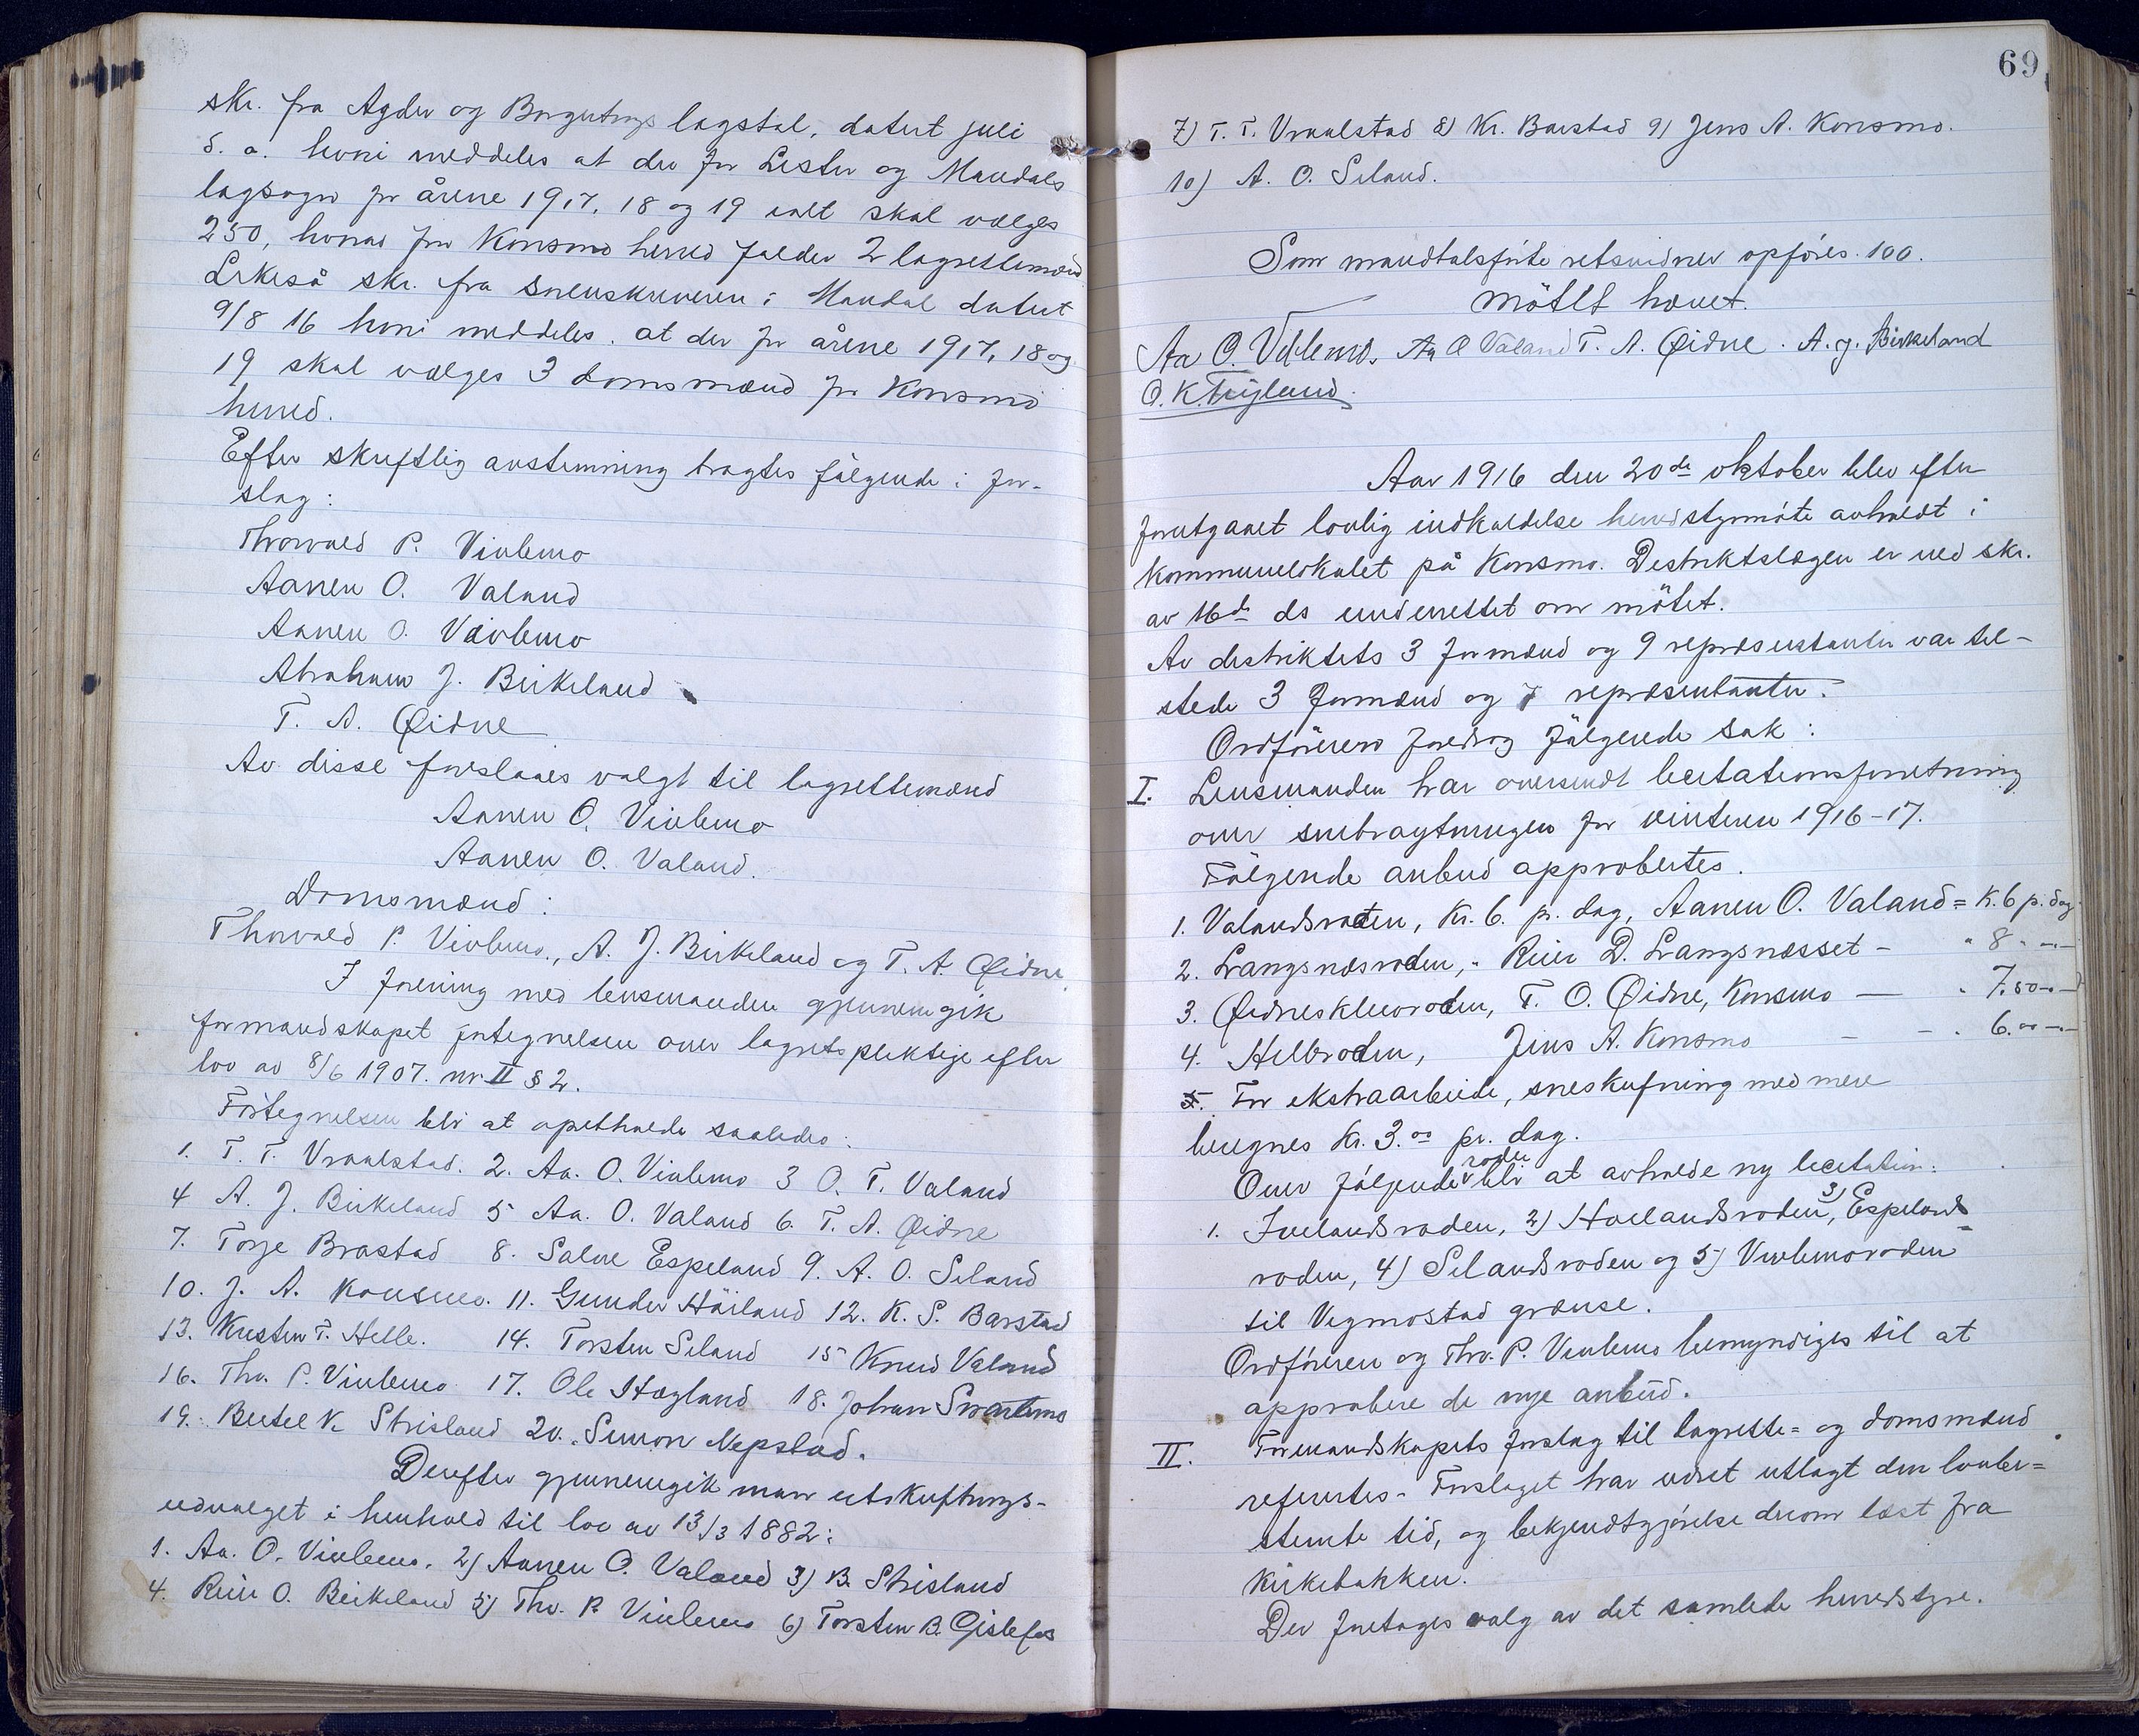 skr. fra Agder og lagstol, datert juli
d. a. hvori meddeles at der for Lister og Mandals
lagsogn for årene 1917, 18 og 19 ialt skal vælges
250, hvorav for Konsmo herred falder 2 lagrettemænd
Likeså skr. fra sorenskriveren i Mandal datert
9/8 16 hvori meddeles at der for årene 1917, 18 og
19 skal vælges 3 domsmænd for Konsmo
herred.
Efter skriftlig avstemning bragtes følgende i for-
slag:
Thorvald P. Viblemo
Aanen O. Valand
Aanen O. Viblemo
Abraham J. Birkeland
T. A. Øidne
Av disse foreslaaes valgt til lagrettemænd
Aanen O. Viblemo
Aanen O. Valand.
Domsmænd:
Thorvald P. Viblemo, A. J. Birkeland og T. A. Øidne.
I forening med lensmanden gjennemgik
formandskapet fortegnelsen over lagretspliktige efter
lov av 8/6 1907. nr. II § 2.
Fortegnelsen blir at opretholde saaledes:
1. T. T. Vraalstad. 2. Aa. O. Viblemo 3 O. T. Valand
4 A. J. Birkeland 5 Aa. O. Valand 6. T. A. Øidne
7. Torje Brastad 8. Salve Espeland 9. A. O. Seland
10. J. A. Konsmo. 11. Gunder Håiland 12. K. S. Barstad
13. Kristen T. Helle. 14. Torsten Seland 15 Knud Valand
16. Thv. P. Viblemo 17. Ole Høgland 18. Johan Svartemo
19. Bertel K Strisland 20. Simon Nepstad.
Derefter gjennemgik man utskiftnings-
utvalget i henhold til lov av 13/3 1882:
1. Aa. O. Viblemo. 2) Aanen O. Valand 3) B. Strisland
4. Reier O. Birkeland 5) Thv. P. Viblemo 6) Torsten B. Gislefos
69
7) T. T. Vraalstad 8) Kr. Barstad 9) Jens A. Konsmo.
10) A. O. Seland.
Som mandtalsførte retsvidner opføres. 100.
Møtet hævet.
Aa O. Viblemo. Aa O Valand T. A. Øidne. A. J. Birkeland
O. K. Trygland.
Aar 1916 den 20de oktober blev efter
forutgaaet lovlig indkaldelse herredstyrmøte avholdt i
kommunelokalet på Konsmo. Destriktslægen er ved skr.
av 16de ds underrettet om møtet.
Av destriktets 3 formænd og 9 repræsentanter var til-
stede 3 formænd og 7 repræsentanter.
Ordføreren foredrog følgende sak:
I. Lensmanden har oversendt licitationsforretning
over snebrøytningen for vinteren 1916-17.
Følgende anbud approbertes.
1. Valandsroden, Kr. 6. pr. dag, Aanen O. Valand = K. 6 p. dag
2. Langsnæsroden, - Reier D. Langsnæsset - " 8 - " -
3. Øidneskleivroden, T. O. Øidne, Konsmo - " 7.50 - " -
4. Helleroden, Jens A. Konsmo - - " 6.00 - " -
5. For ekstraarbeide, sneskufning med mere
beregnes Kr. 3.00 pr. dag.
Over følgende roder blir at avholde ny licitation:
1. Ivelandsroden, 2) Hoelandsroden, 3) Espelands
roden, 4) Selandsroden og 5) Viblemoroden
til Vigmostad grænse.
Ordføreren og Thv. P. Viblemo bemyndiges til at
approbere de nye anbud.
II. Formandskapets forslag til lagrette= og domsmænd
refertes. Forslaget har været utlagt den lovbe=
stemte tid, og bekjendtgjørelse derom læst fra
kirkebakken.
Der foretages valg av det samlede herredstyre.